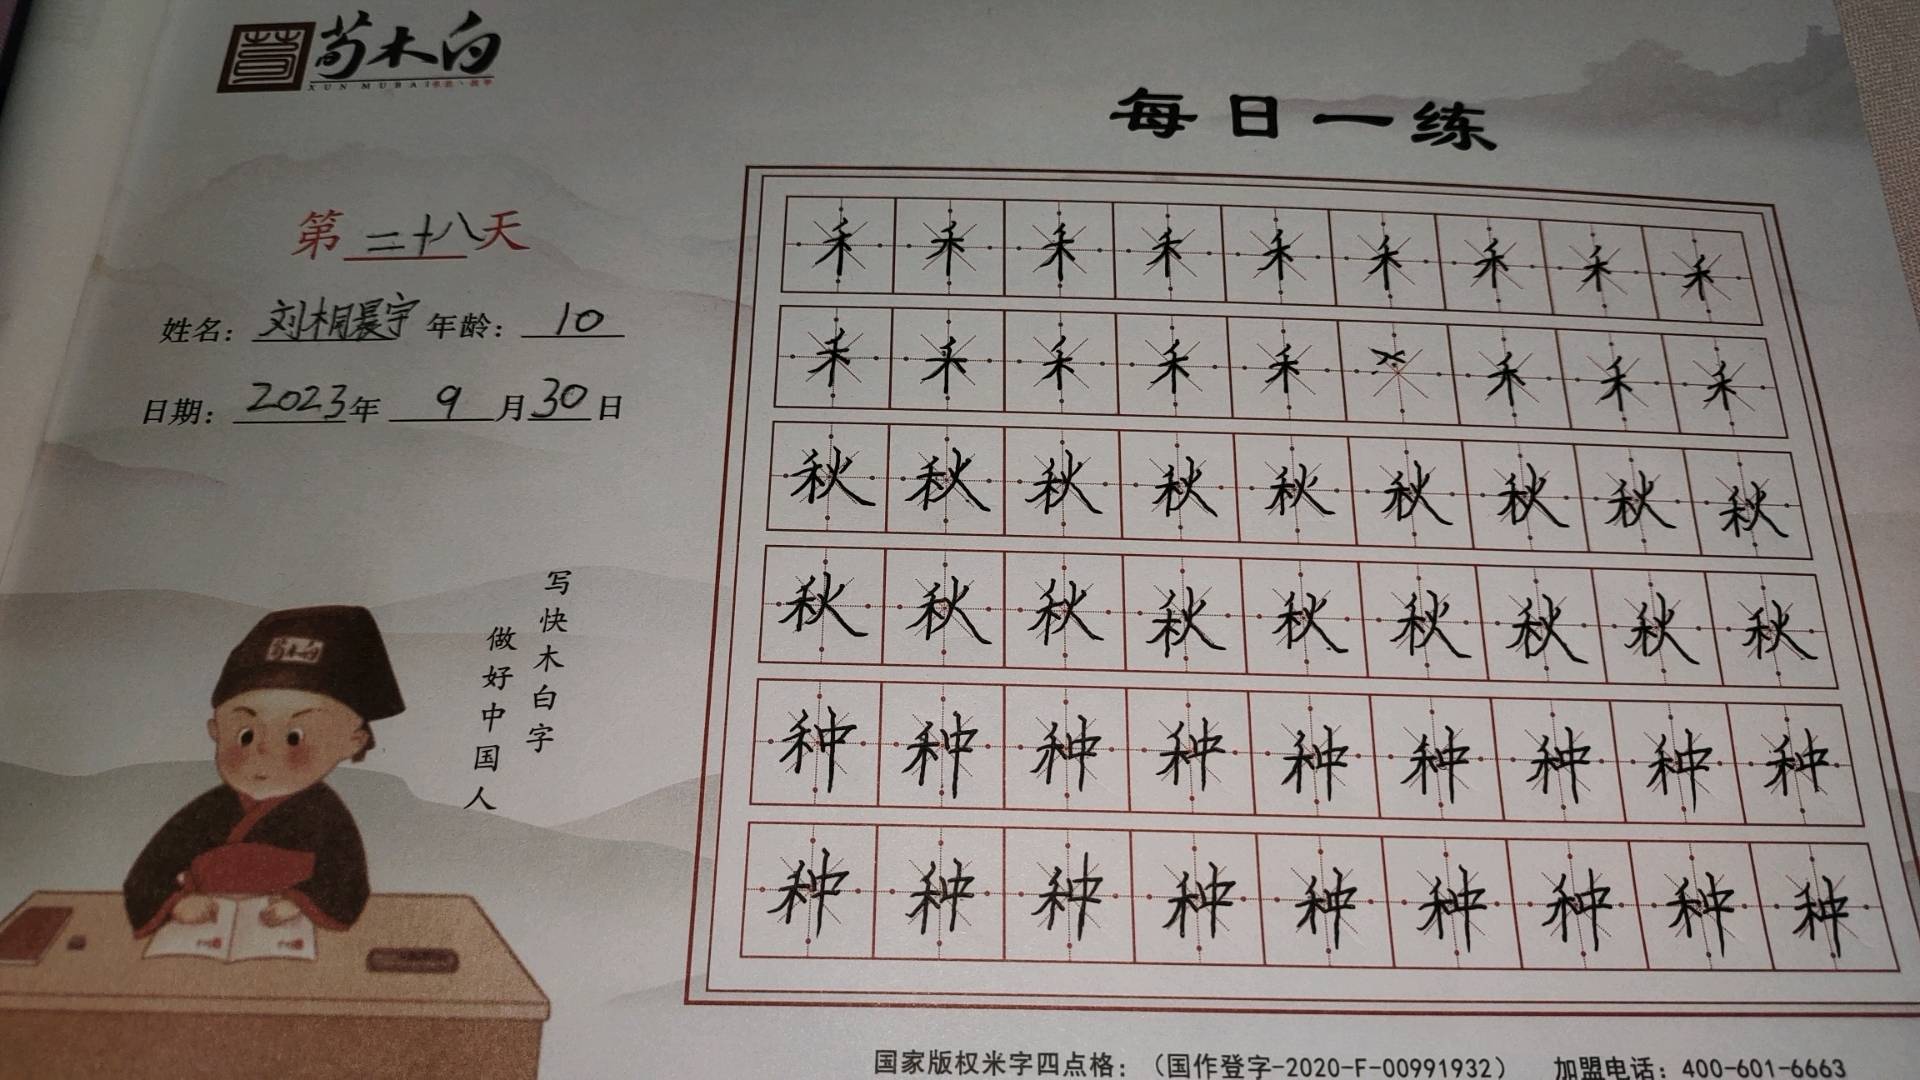 荀木白
XUN MUBAI
每日一练
第二十八天
姓名：刘桐晨宇 年龄：10
日期：2023年 9月30日
禾禾禾禾禾禾禾禾禾
禾禾禾禾禾禾禾禾
秋秋秋秋秋秋秋秋秋
秋秋秋秋秋秋秋秋秋
种种种种种种种种种
种种种种种种种种种
写快木白字
做好中国人
荀木白
国家版权米字四点格：（国作登字-2020-F-00991932） 加盟电话：400-601-6663